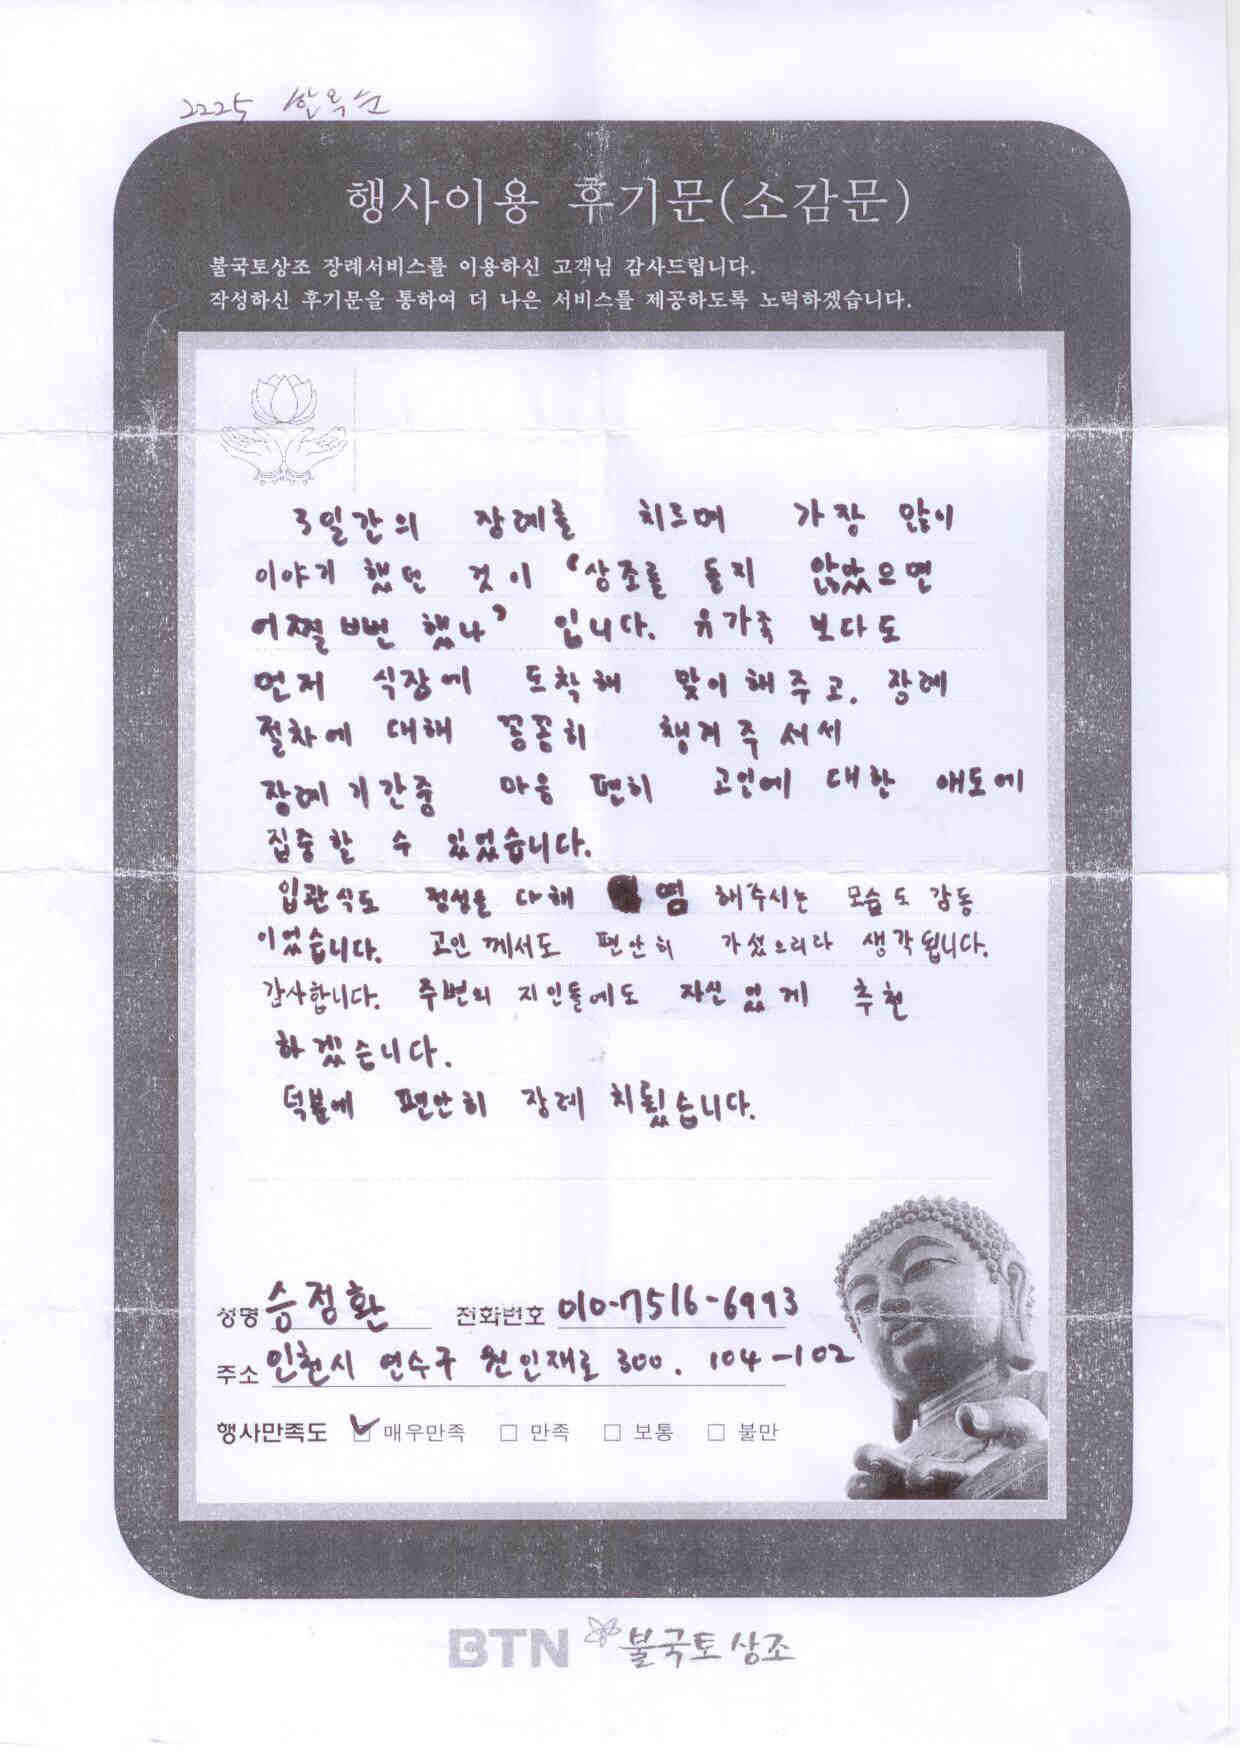 2225 한옥순
행사이용 후기문(소감문)
불국토상조 장례서비스를 이용하신 고객님 감사드립니다.
작성하신 후기문을 통하여 더 나은 서비스를 제공하도록 노력하겠습니다.
3일간의 장례를 치르며 가장 많이
이야기 했던 것이 '상조를 들지 않았으면
어쩔뻔 했나' 입니다. 유가족 보다도
먼저 식장에 도착해 맞이해주고, 장례
절차에 대해 꼼꼼히 챙겨주셔서
장례기간중 마음 편히 고인에 대한 애도에
집중할 수 있었습니다.
입관식도 정성을 다해 염 해주시는 모습도 감동
이었습니다. 고인께서도 편안히 가셨으리라 생각됩니다.
감사합니다. 주변의 지인들에도 자신있게 추천
하겠습니다.
덕분에 편안히 장례 치뤘습니다.
성명 승정환 전화번호 010-7516-6993
주소 인천시 연수구 원인재로 300. 104-102
행사만족도 ☑ 매우만족 □ 만족 □ 보통 □ 불만
BTN 불국토상조